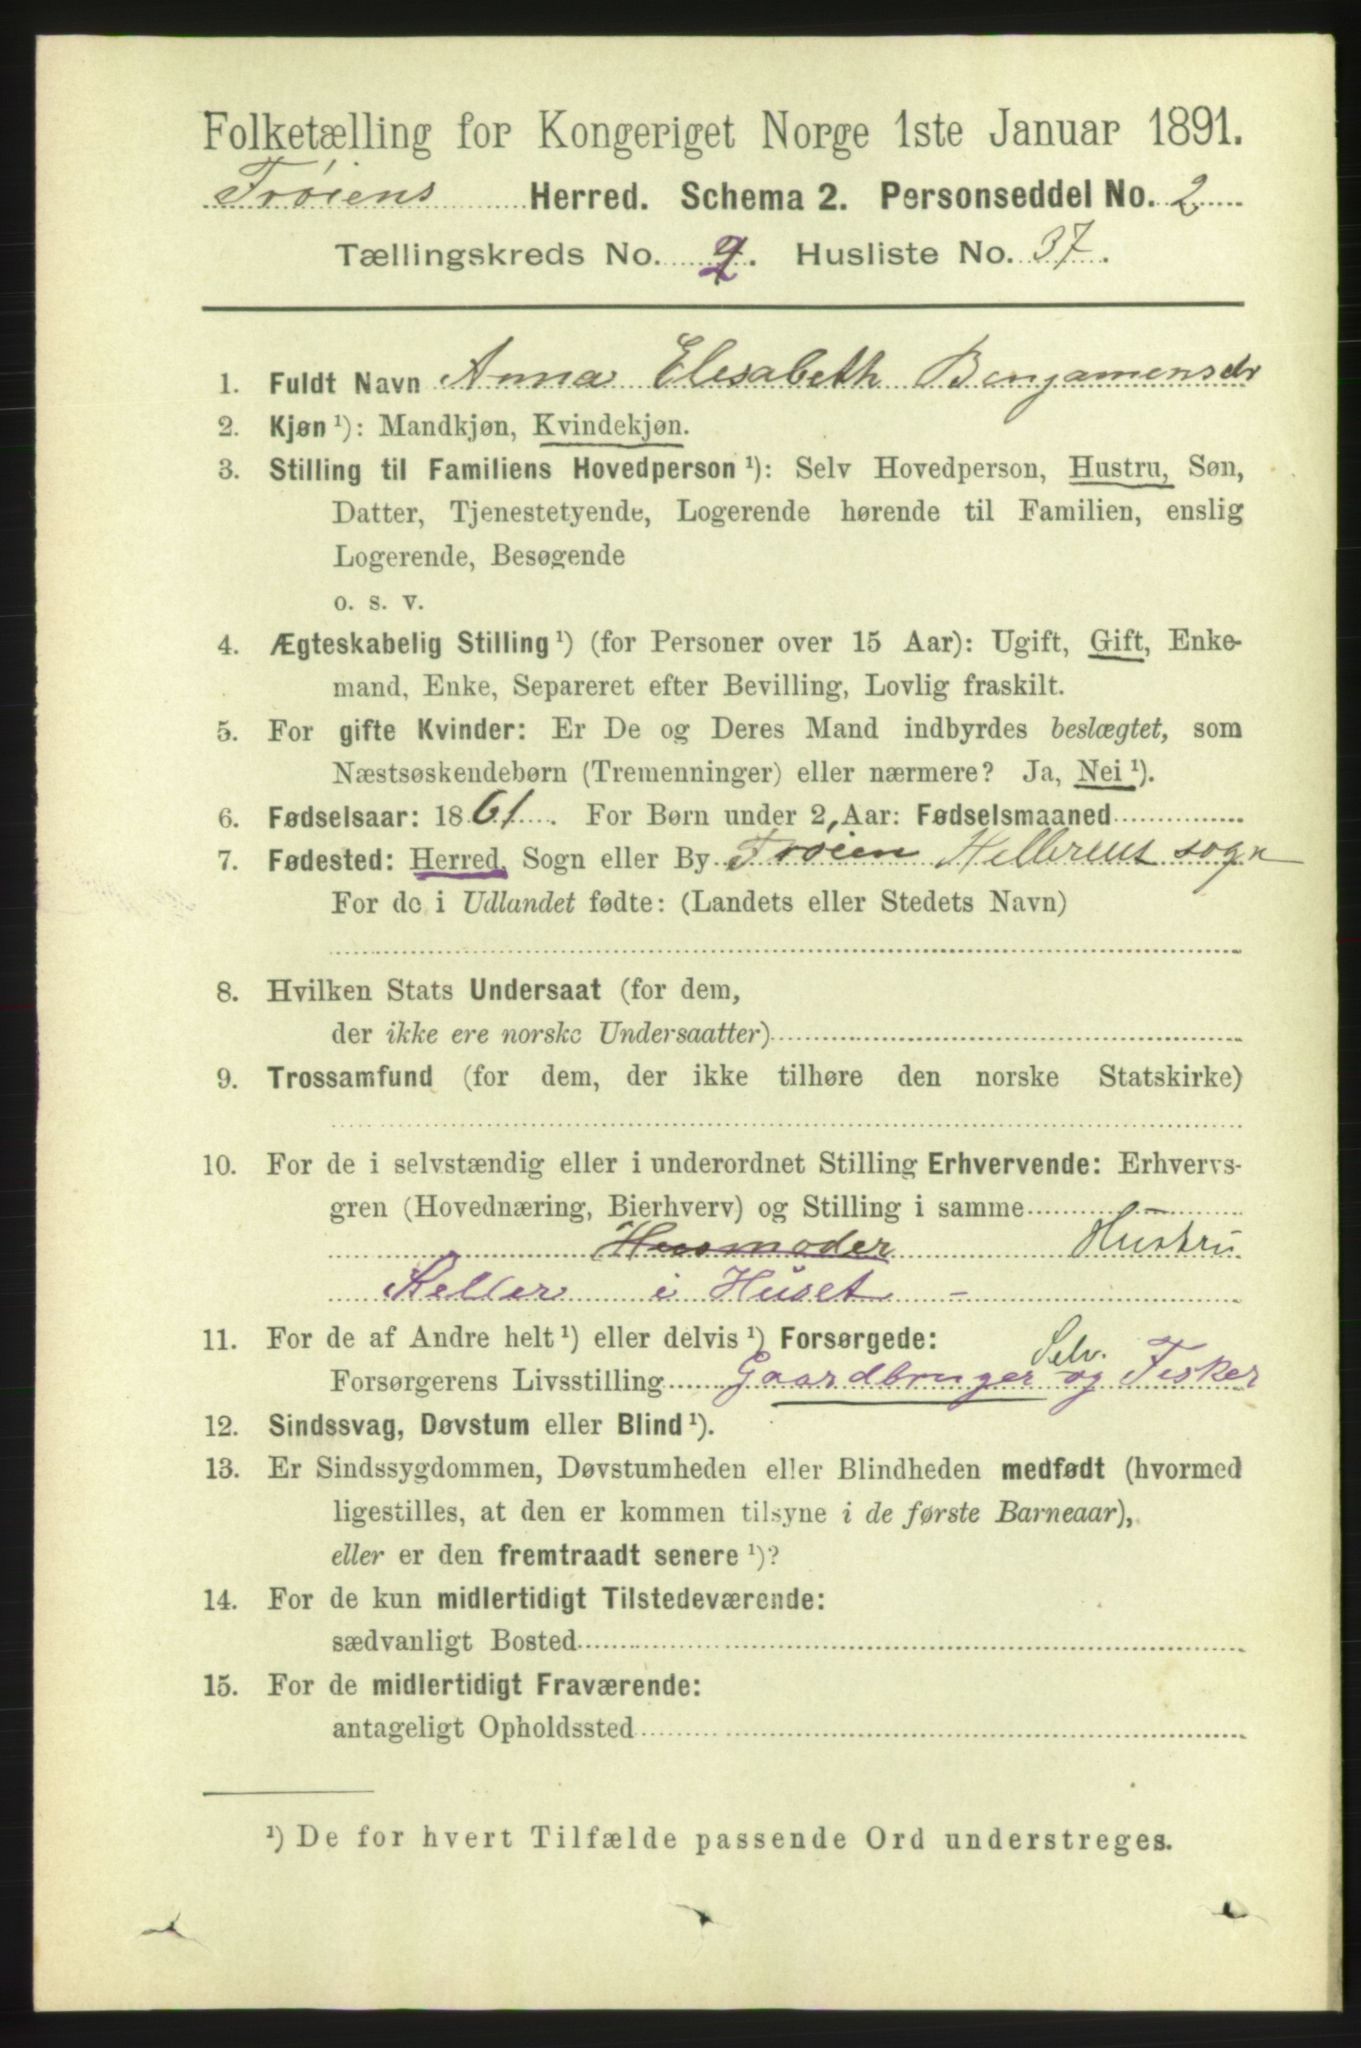 Folketælling for Kongeriget Norge 1ste Januar 1891.
Frøiens Herred. Schema 2. Personseddel No. 2
Tællingskreds No. 2. Husliste No. 37.
1. Fuldt Navn Anna Elesabeth Benjamensdr
2. Kjøn ¹): Mandkjøn, Kvindekjøn.
3. Stilling til Familiens Hovedperson ¹): Selv Hovedperson, Hustru, Søn,
Datter, Tjenestetyende, Logerende hørende til Familien, enslig
Logerende, Besøgende
o. s. v.
4. Ægteskabelig Stilling ¹) (for Personer over 15 Aar): Ugift, Gift, Enke-
mand, Enke, Separeret efter Bevilling, Lovlig fraskilt.
5. For gifte Kvinder: Er De og Deres Mand indbyrdes beslægtet, som
Næstsøskendebørn (Tremenninger) eller nærmere? Ja, Nei ¹).
6. Fødselsaar: 1861. For Børn under 2 Aar: Fødselsmaaned
7. Fødested: Herred, Sogn eller By Frøien sogn
For de i Udlandet fødte: (Landets eller Stedets Navn)
8. Hvilken Stats Undersaat (for dem,
der ikke ere norske Undersaatter)
9. Trossamfund (for dem, der ikke tilhøre den norske Statskirke)
10. For de i selvstændig eller i underordnet Stilling Erhvervende: Erhvervs-
gren (Hovednæring, Bierhverv) og Stilling i samme
Husmoder Hustru
Steller i Huset -
11. For de af Andre helt ¹) eller delvis ¹) Forsørgede:
Selv.
Forsørgerens Livsstilling Gaardbruger og Fisker
12. Sindssvag, Døvstum eller Blind ¹).
13. Er Sindssygdommen, Døvstumheden eller Blindheden medfødt (hvormed
ligestilles, at den er kommen tilsyne i de første Barneaar),
eller er den fremtraadt senere ¹)?
14. For de kun midlertidigt Tilstedeværende:
sædvanligt Bosted
15. For de midlertidigt Fraværende:
antageligt Opholdssted
¹) De for hvert Tilfælde passende Ord understreges.